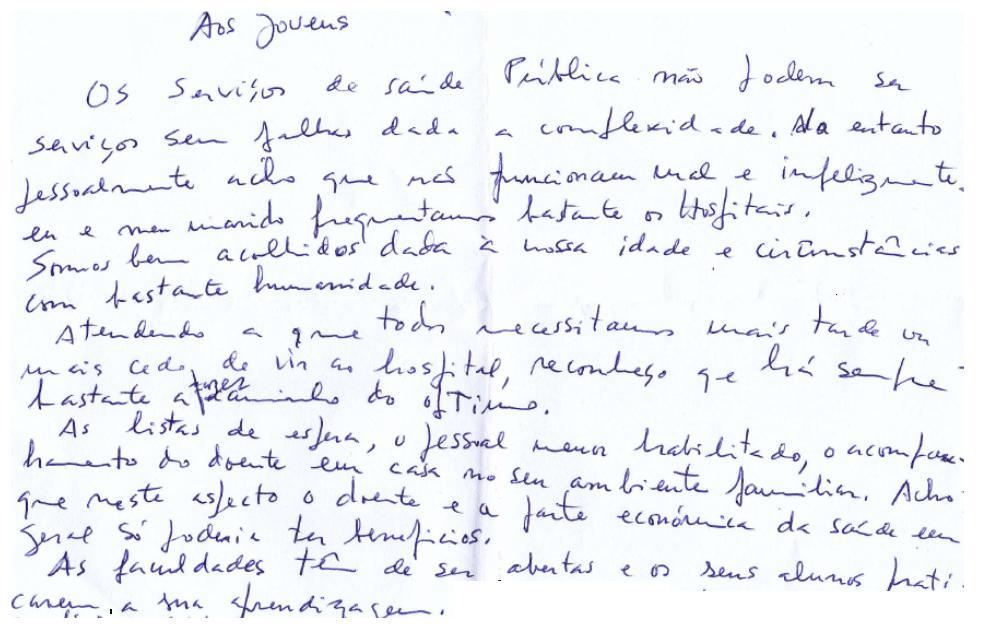 Aos Jovens
Os Serviços de saúde Pública não podem ser
serviços sem falhas dada a complexidade. No entanto
pessoalmente acho que não funcionam mal e infelizmente.
eu e meu marido frequentamos bastante os Hospitais.
Somos bem acolhidos dada à nossa idade e circunstâncias
com bastante humanidade.
Atendendo a que todos necessitamos mais tarde ou
mais cedo, de vir ao hospital, reconheço que há sempre
bastante a fazer caminho do óptimo.
As listas de espera, o pessoal menor habilitado, o acompan-
hamento do doente em casa no seu ambiente familiar. Acho
que neste aspecto o doente e a parte económica da saúde em
geral só poderia ter benefícios.
As faculdades têm de ser abertas e os seus alunos prati-
carem, a sua aprendizagem.